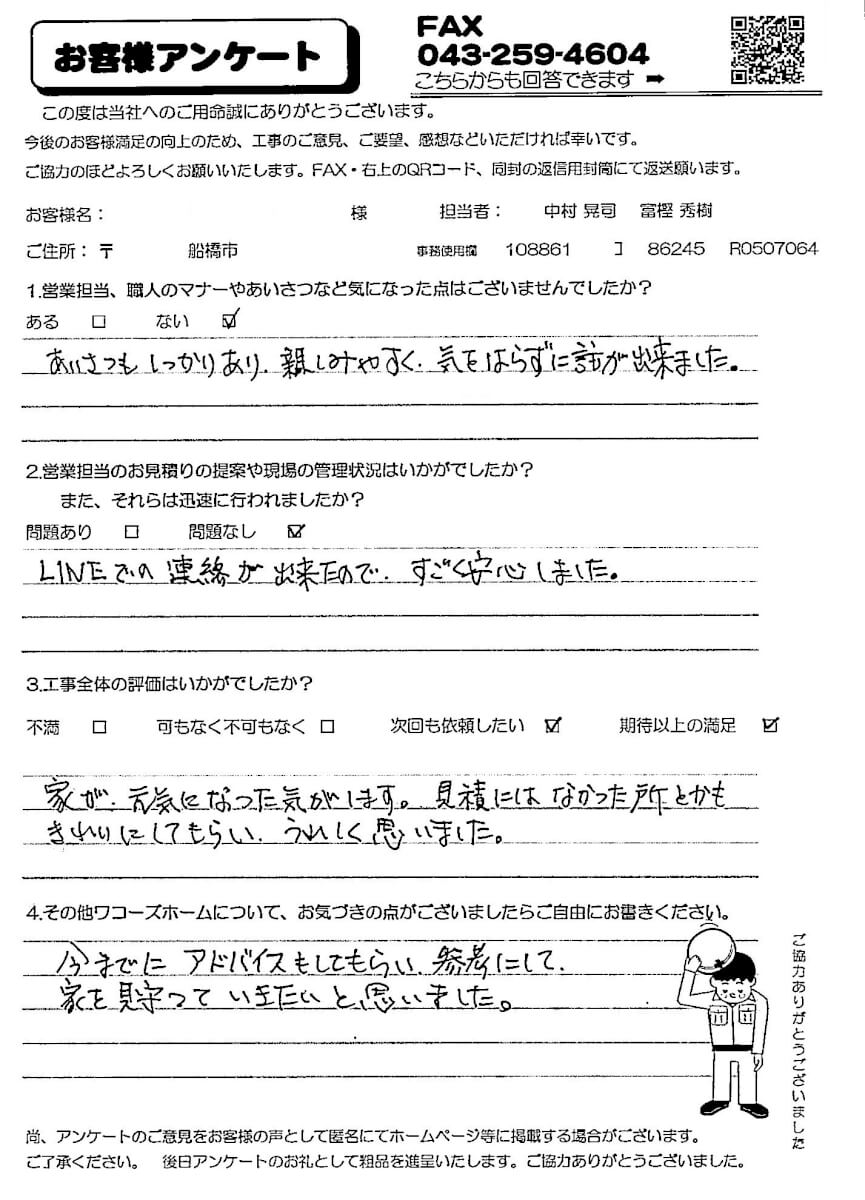 お客様アンケート
FAX
043-259-4604
こちらからも回答できます ➡
この度は当社へのご用命誠にありがとうございます。
今後のお客様満足の向上のため、工事のご意見、ご要望、感想などいただければ幸いです。
ご協力のほどよろしくお願いいたします。FAX・右上のQRコード、同封の返信用封筒にて返送願います。
お客様名： 様 担当者： 中村 晃司 富樫 秀樹
ご住所：〒 船橋市 事務使用欄 108861 コ 86245 R0507064
1.営業担当、職人のマナーやあいさつなど気になった点はございませんでしたか？
ある □ ない ☑
あいさつも しっかりあり、親しみやすく、気をはらずに話が出来ました。
2.営業担当のお見積りの提案や現場の管理状況はいかがでしたか？
また、それらは迅速に行われましたか？
問題あり □ 問題なし ☑
LINEでの 連絡が 出来たので、すごく安心しました。
3.工事全体の評価はいかがでしたか？
不満 □ 可もなく不可もなく □ 次回も依頼したい ☑ 期待以上の満足 ☑
家が、元気になった気がします。見積にはなかった所とかも
きれいにしてもらい、うれしく思いました。
4.その他ワコーズホームについて、お気づきの点がございましたらご自由にお書きください。
今までに アドバイスもしてもらい、参考にして、
家を見守っていきたいと、思いました。
ご協力ありがとうございました
尚、アンケートのご意見をお客様の声として匿名にてホームページ等に掲載する場合がございます。
ご了承ください。 後日アンケートのお礼として粗品を進呈いたします。ご協力ありがとうございました。